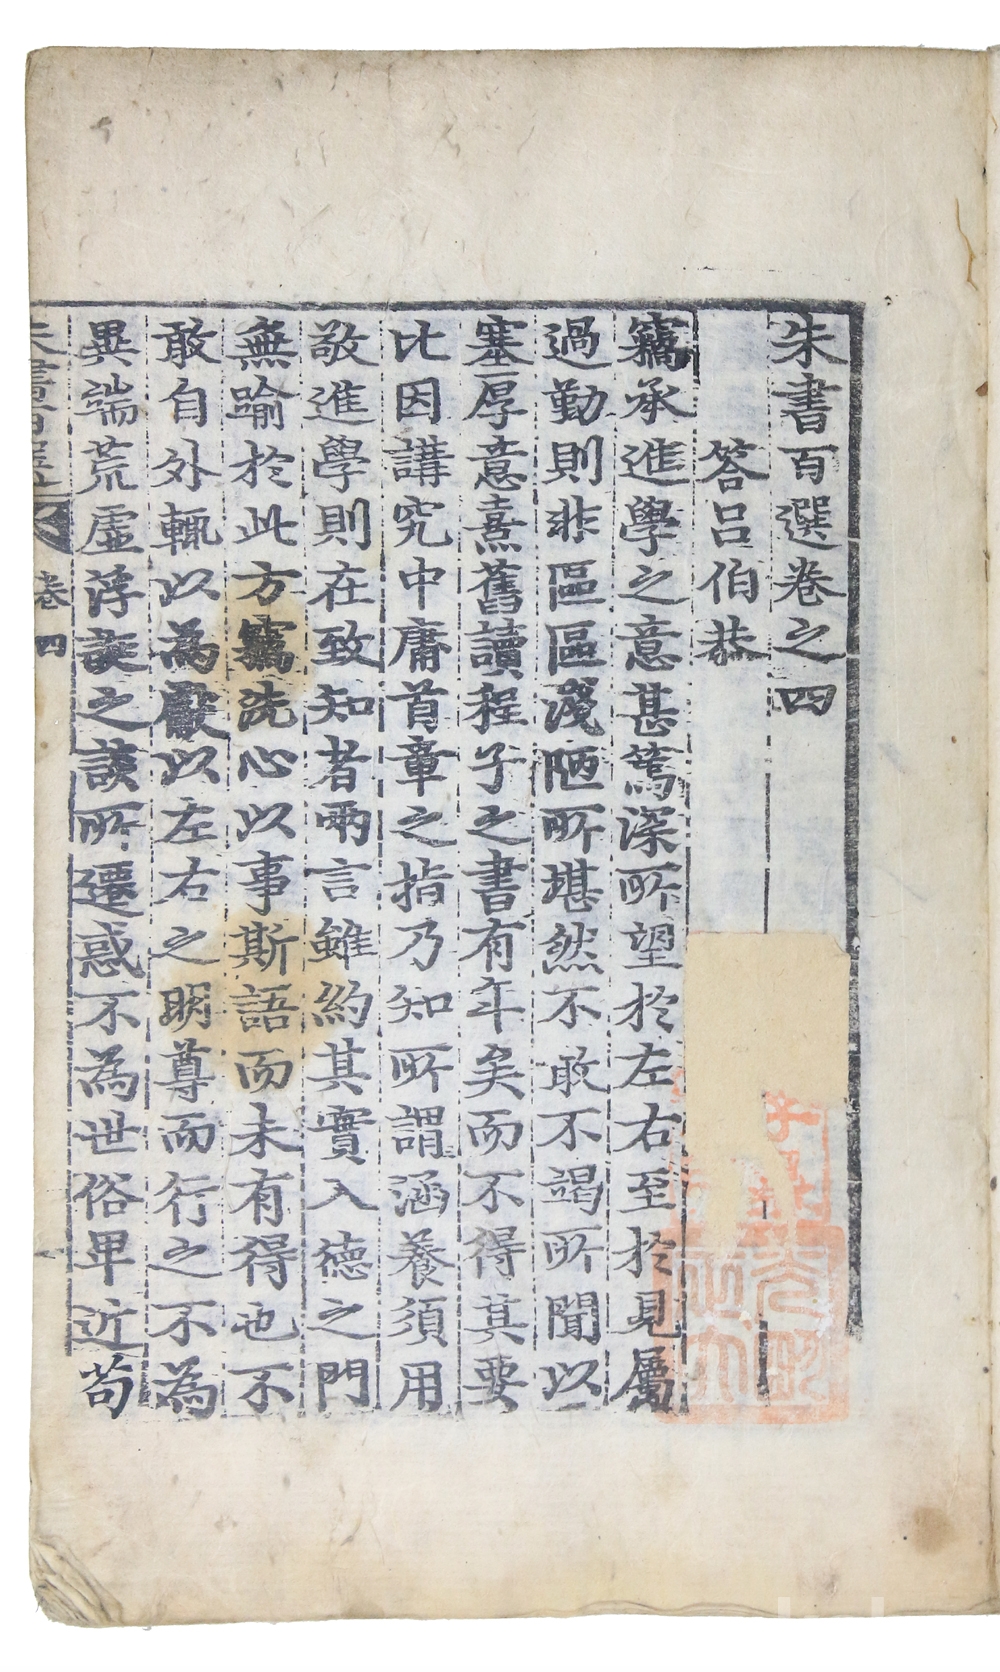 朱書百選卷之四
答呂伯恭
竊承進學之意甚篤深所望於左右至於見屬
過勤則非區區淺陋所堪然不敢不竭所聞以
塞厚意熹舊讀程子之書有年矣而不得其要
比因講究中庸首章之指乃知所謂涵養須用
敬進學則在致知者兩言雖約其實入德之門
無踰於此方竊洗心以事斯語而未有得也不
敢自外輒以為獻以左右之明尊而行之不為
異端荒虛浮誕之談所遷惑不為世俗卑近苟
朱書百選 卷四